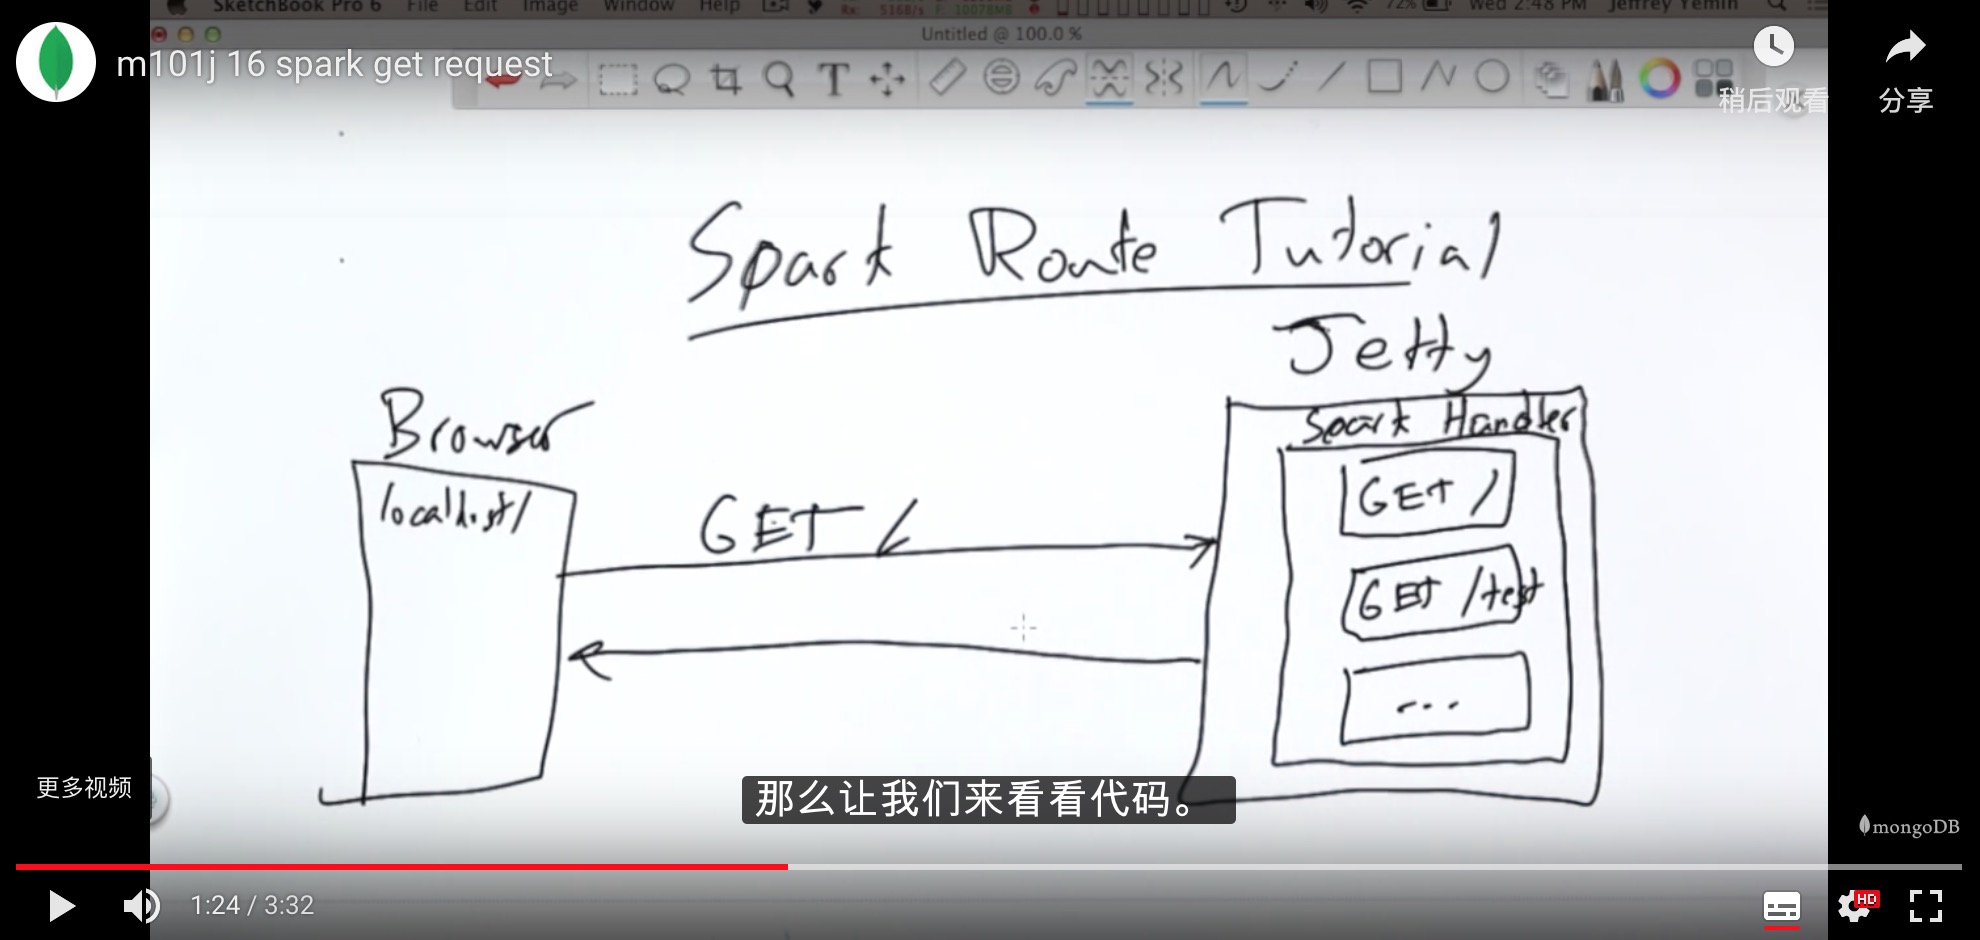 SketchBook Pro 6 File Edit Image Window Help 72% Wed 2:48 PM Jeffrey Yemin
Untitled @ 100.0 %
m101j 16 spark get request
T
稍后观看
分享
Spark Route Tutorial
Jetty
Browser
Spark Handler
localhost/
GET /
GET /
GET /test
...
更多视频
那么让我们来看看代码。
mongoDB
1:24 / 3:32
HD